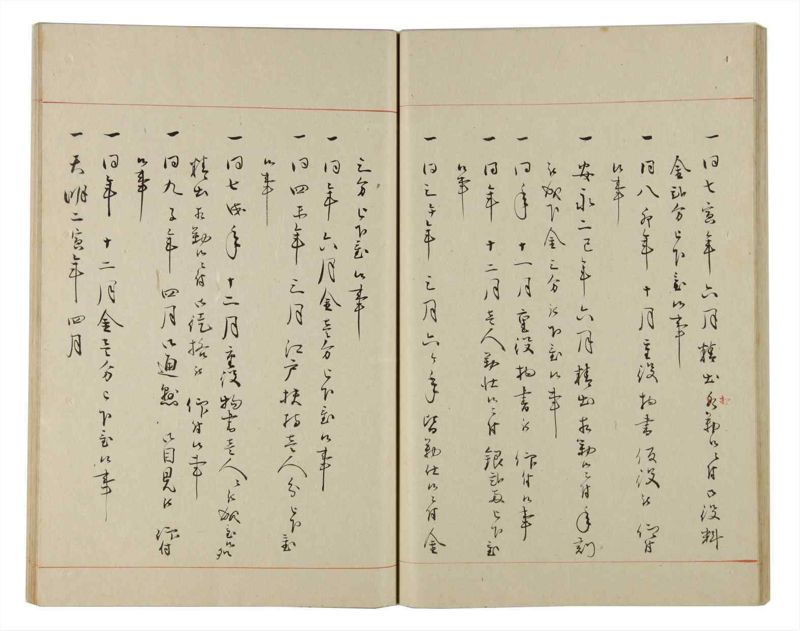 一同七寅年六月精出相勤候ニ付御役料
金弐分被下置候事
一同八卯年十月重役物書仮役被仰付
候事
一安永二巳年六月精出相勤候ニ付年割
被成下金三分被下置候事
一同年十一月重役物書被仰付候事
一同年十二月壱人勤仕候ニ付銀弐両被下置
候事
一同三午年三月六ヶ年皆勤仕候ニ付金
三分被下置候事
一同年六月金壱分被下置候事
一同四未年三月江戸扶持壱人分被下置
候事
一同七戌年十二月重役物書壱人ニ被成置候処
精出相勤候ニ付御徒格被仰付候事
一同九子年四月御通懸御目見被仰付
候事
一同年十二月金壱分被下置候事
一天明二寅年四月